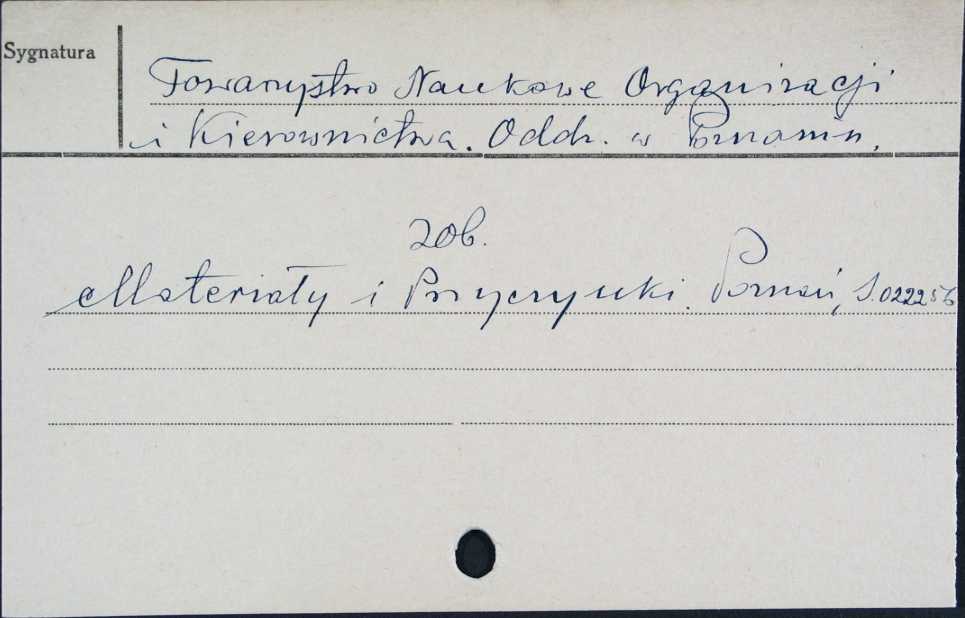 Sygnatura
Towarzystwo Naukowe Organizacji
i Kierownictwa. Oddz. w Poznaniu.
zob.
Materiały i Przyczynki. Poznań, S.022256